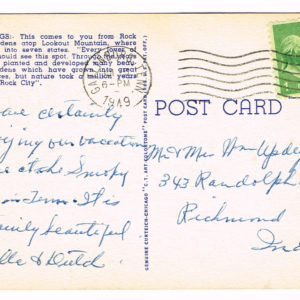 GS: This comes to you from Rock
dens atop Lookout Mountain, where
into seven states. "Every lover of
should see this spot. Through the
planted and developed many beau
dens which have grown into great
ces, but nature took a million years
Rock City".
6-PM
1949
POST CARD
GENUINE CURTEICH-CHICAGO "C.T. ART-COLORTONE" POST CARD (REG. U.S. PAT. OFF.)
are certainly
ying our vacation
at the Smoky
in Tenn. It is
beautiful
& Dutch
Mr & Mrs Wm
343 Randolph
Richmond
Ind